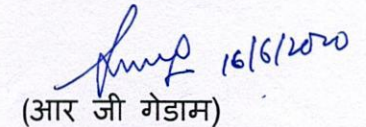 16/6/2020
(आर जी गेडाम)